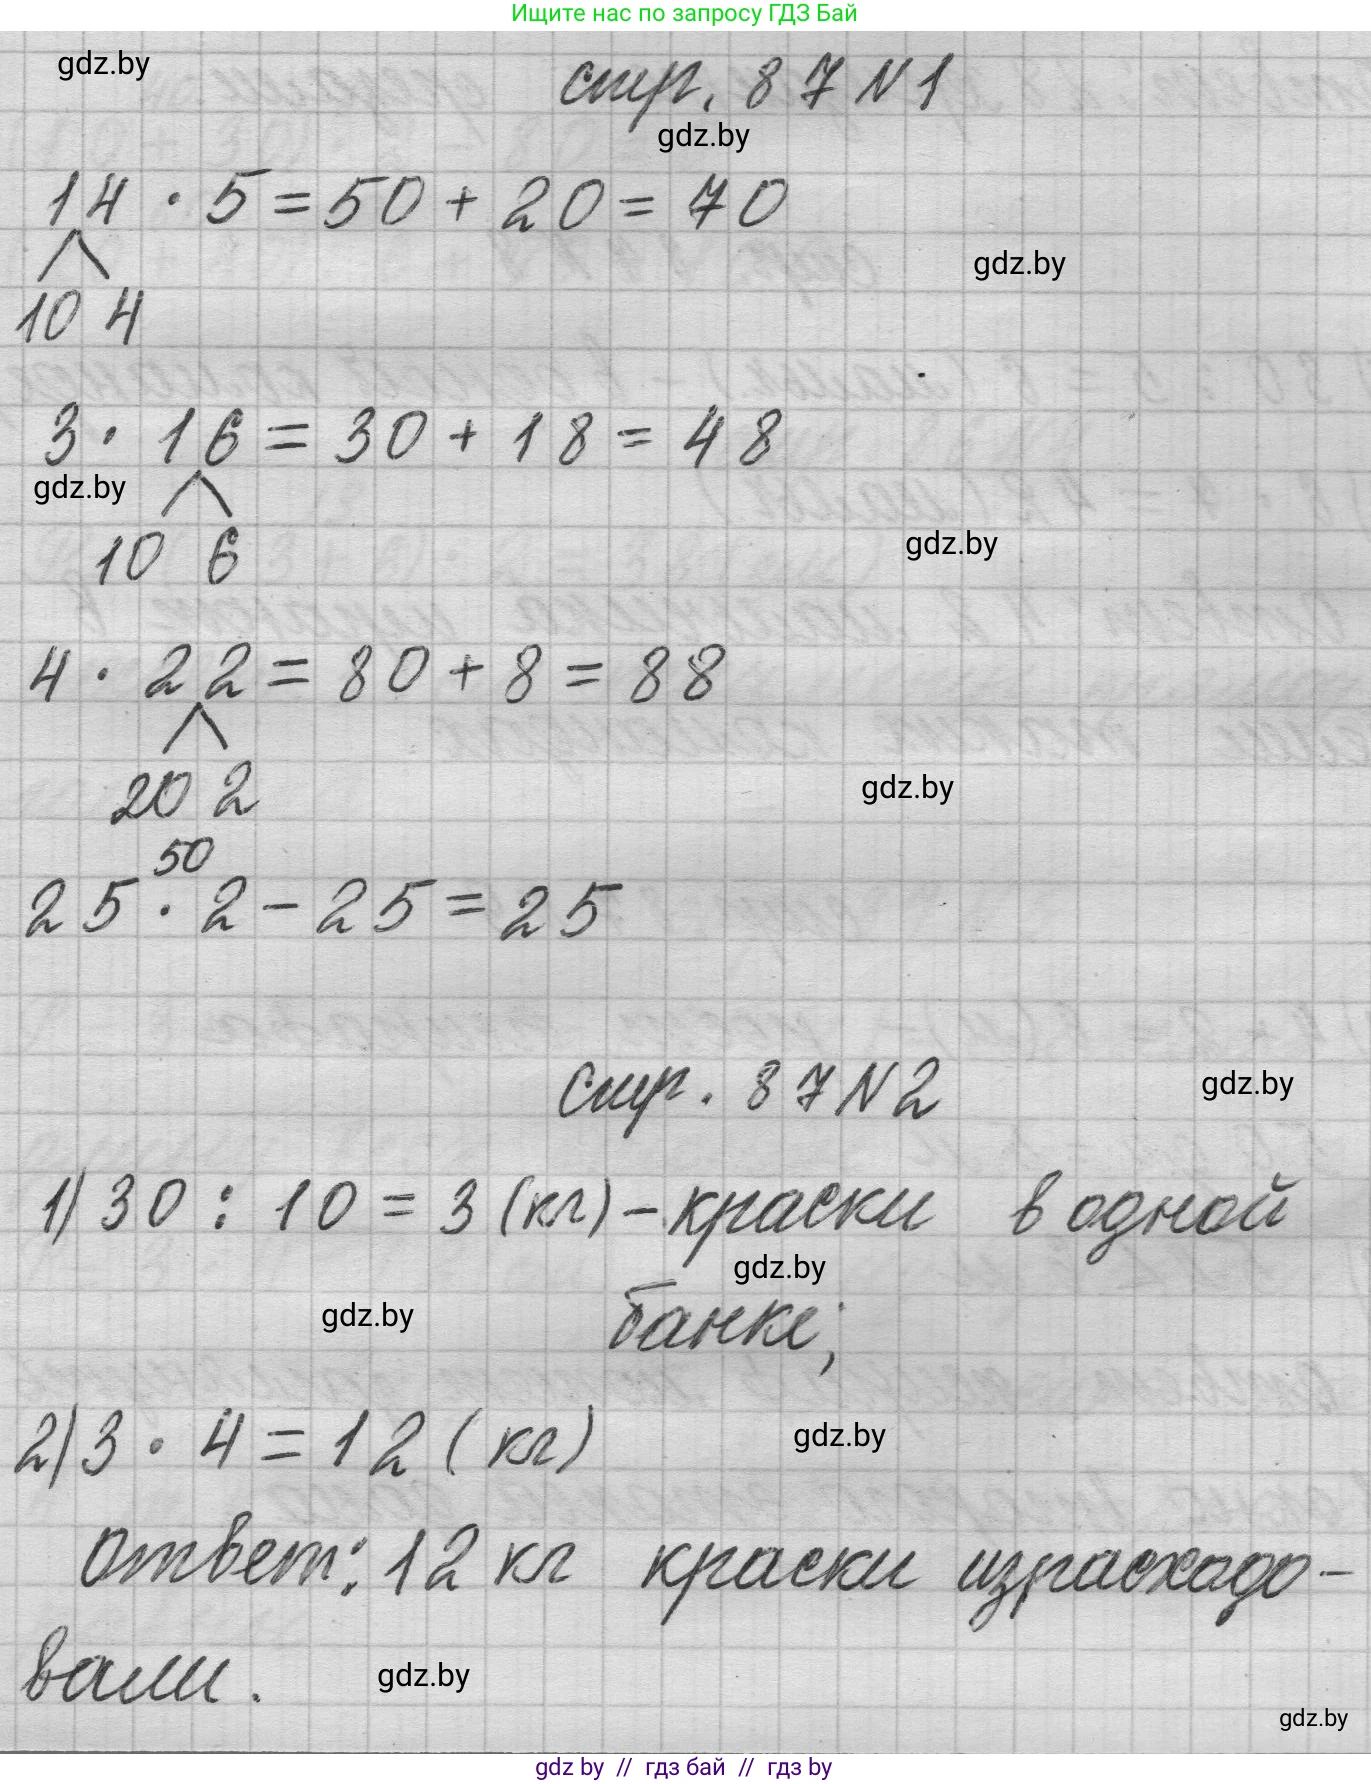 Ищите нас по запросу ГДЗ Бай
gdz.by
стр. 87 N 1
gdz.by
14 · 5 = 50 + 20 = 70
gdz.by
10 4
3 · 16 = 30 + 18 = 48
gdz.by
10 6
gdz.by
4 · 22 = 80 + 8 = 88
20 2
gdz.by
50
25 · 2 - 25 = 25
стр. 87 N 2
gdz.by
1) 30 : 10 = 3 (кг) - краски в одной
gdz.by
банке;
gdz.by
2) 3 · 4 = 12 (кг)
gdz.by
Ответ: 12 кг краски израсходо-
вали.
gdz.by
gdz.by
gdz.by // гдз бай // гдз by